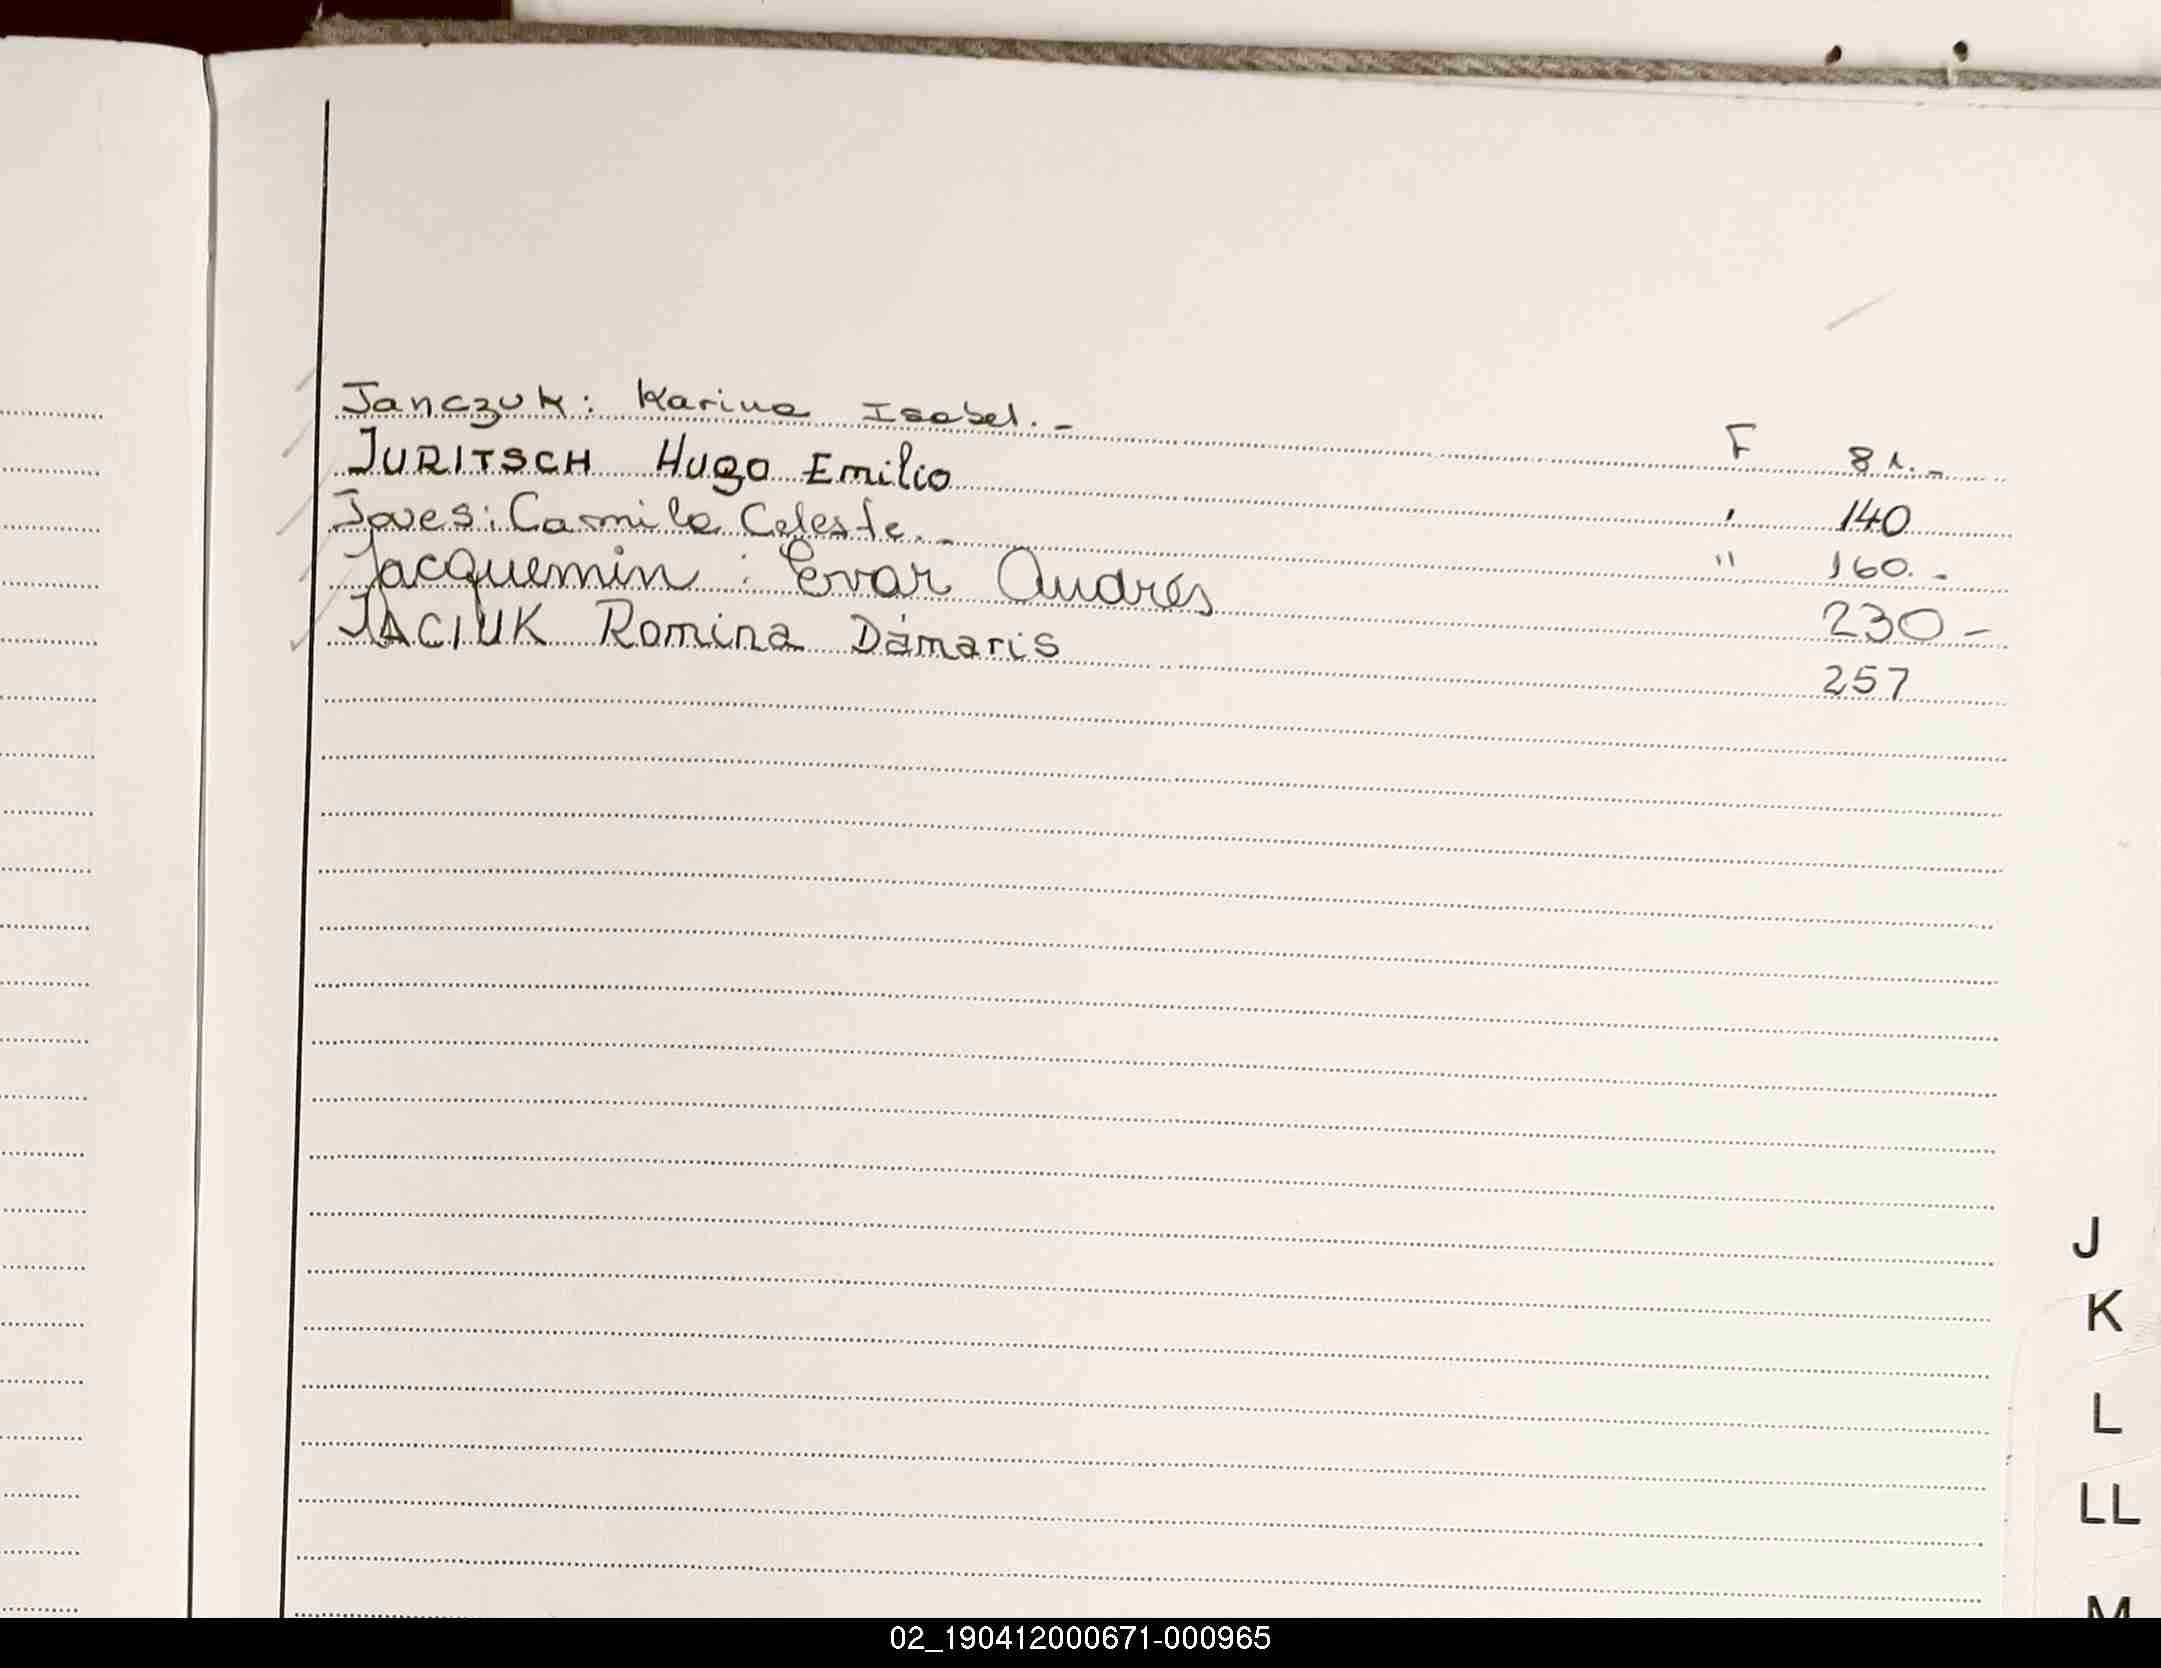 Janczuk: Karina Isabel.- F 81.-
JURITSCH Hugo Emilio ' 140
Joves: Camila Celeste.- " 160.-
Jacquemin: Evar Andrés 230-
JACIUK Romina Dámaris 257
J
K
L
LL
M
02_190412000671-000965